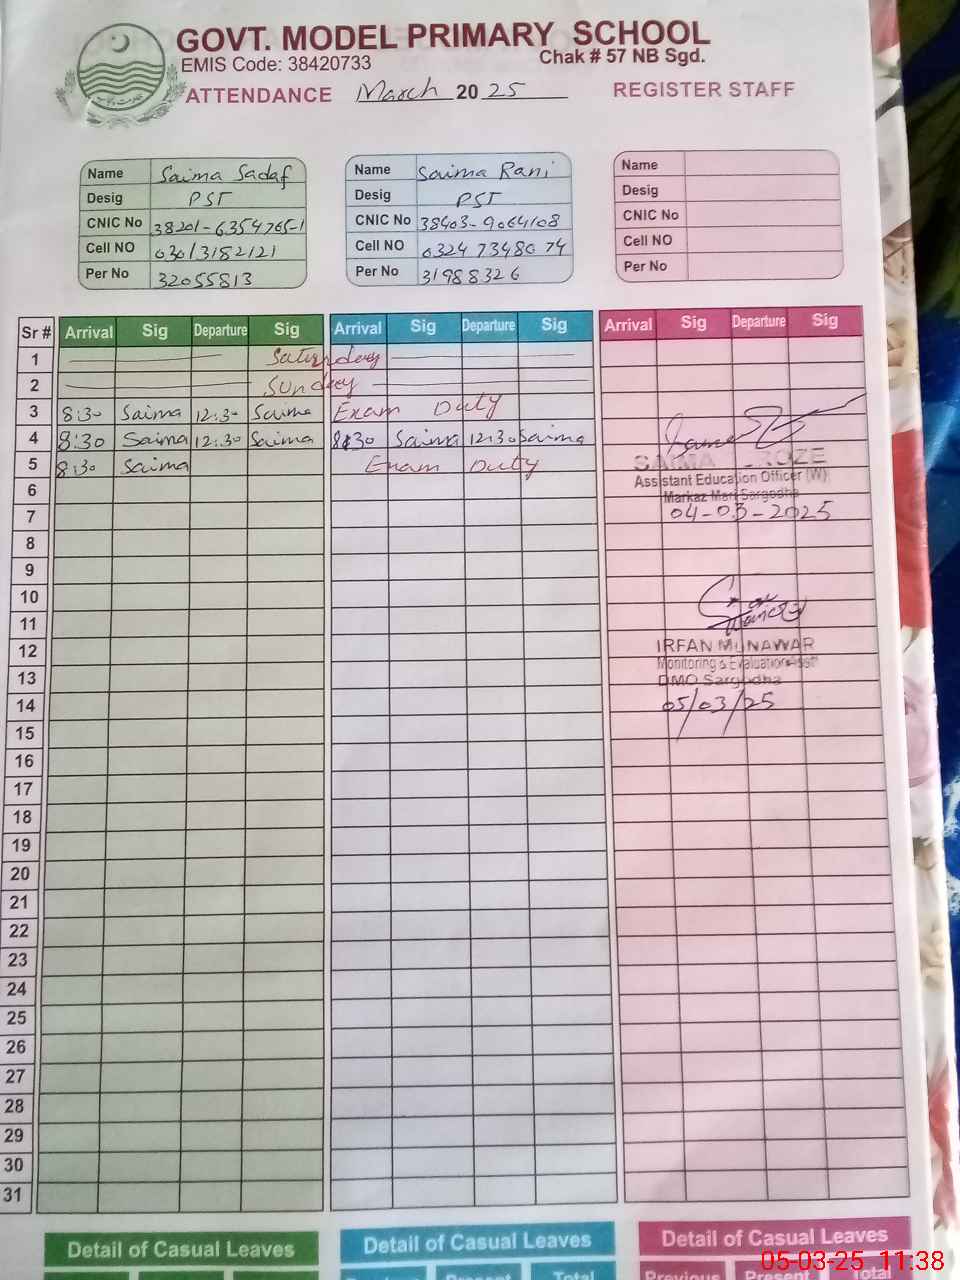 GOVT. MODEL PRIMARY SCHOOL
EMIS Code: 38420733 Chak # 57 NB Sgd.
ATTENDANCE March 2025 REGISTER STAFF
Name Saima Sadaf
Desig PST
CNIC No 38201-6354765-1
Cell NO 03013182121
Per No 32055813
Name Saima Rani
Desig PST
CNIC No 38403-9064108
Cell NO 0324 7348074
Per No 31988326
Name
Desig
CNIC No
Cell NO
Per No
Sr # Arrival Sig Departure Sig Arrival Sig Departure Sig Arrival Sig Departure Sig
1 Saturday
2 Sunday
3 8:30 Saima 12:30 Saima Exam Duty
4 8:30 Saima 12:30 Saima 8:30 Saima 12:30 Saima
5 8:30 Saima Exam Duty
6
7
8
9
10
11
12
13
14
15
16
17
18
19
20
21
22
23
24
25
26
27
28
29
30
31
SAIMA
Assistant Education Officer (W)
Markaz Mari Sargodha
04-03-2025
IRFAN MUNAWAR
Monitoring & Evaluation Asstt
DMO Sargodha
05/03/25
Detail of Casual Leaves Detail of Casual Leaves Detail of Casual Leaves
Previous Present Total Previous Present Total
05-03-25 11:38